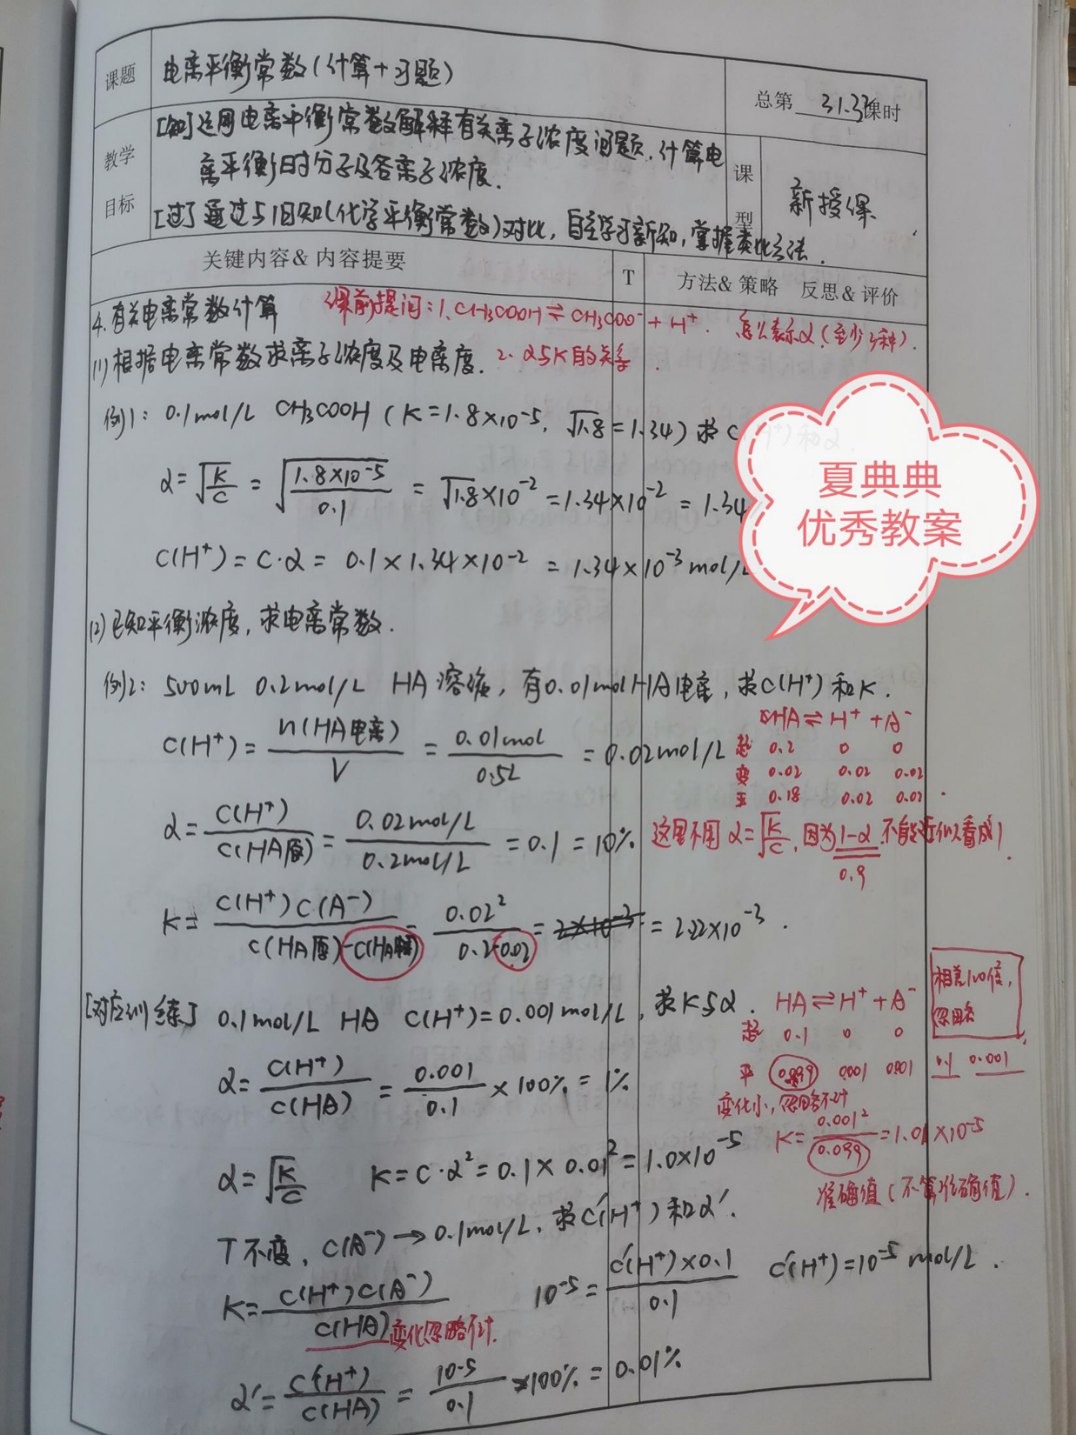 课题 电离平衡常数(计算+习题)
总第 31.33 课时
教学目标
[知]运用电离平衡常数解释有关离子浓度问题.计算电
离平衡时分子及各离子浓度.
[过]通过与旧知(化学平衡常数)对比,自主学习新知,掌握类比方法.
课型 新授课
关键内容& 内容提要 T 方法& 策略 反思& 评价
4.有关电离常数计算 课前提问:1.CH₃COOH⇌CH₃COO⁻+H⁺. 怎么表示α(至少3种).
(1)根据电离常数求离子浓度及电离度. 2.α与K的关系.
例1: 0.1mol/L CH₃COOH (K=1.8×10⁻⁵, √1.8=1.34) 求C
和α
α=√(K/C) = √(1.8×10⁻⁵/0.1) = √1.8×10⁻² =1.34×10⁻² = 1.34
C(H⁺)=C·α = 0.1×1.34×10⁻² = 1.34×10⁻³ mol/L
夏典典
优秀教案
(2)已知平衡浓度,求电离常数.
例2: 500mL 0.2mol/L HA溶液,有0.01mol HA电离,求C(H⁺)和K.
C(H⁺)= n(HA电离)/V = 0.01mol/0.5L = 0.02mol/L
HA⇌H⁺+A⁻
起 0.2 0 0
变 0.02 0.02 0.02
平 0.18 0.02 0.02.
α= C(H⁺)/C(HA原) = 0.02mol/L/0.2mol/L =0.1=10%
这里不用α=√(K/C),因为1-α不能近似看成1.
0.9
K= C(H⁺)C(A⁻)/C(HA原)-C(HA电离) = 0.02²/0.2-0.02 = 2×10⁻³ = 2.22×10⁻³.
[对应训练] 0.1mol/L HA C(H⁺)=0.001mol/L,求K与α.
HA⇌H⁺+A⁻
起 0.1 0 0
平 0.099 0.001 0.001
变化小,忽略不计
相差100倍,
忽略
0.1 0.001
α= C(H⁺)/C(HA) = 0.001/0.1 ×100%=1%
K= 0.001²/0.099 =1.01×10⁻⁵
准确值(不算准确值).
α=√(K/C) K=C·α²=0.1×0.01²=1.0×10⁻⁵
T不变, C(A⁻)→0.1mol/L,求C'(H⁺)和α'.
K= C(H⁺)C(A⁻)/C(HA) 10⁻⁵= C'(H⁺)×0.1/0.1 C'(H⁺)=10⁻⁵ mol/L.
变化忽略不计.
α'= C'(H⁺)/C(HA) = 10⁻⁵/0.1 ×100% = 0.01%